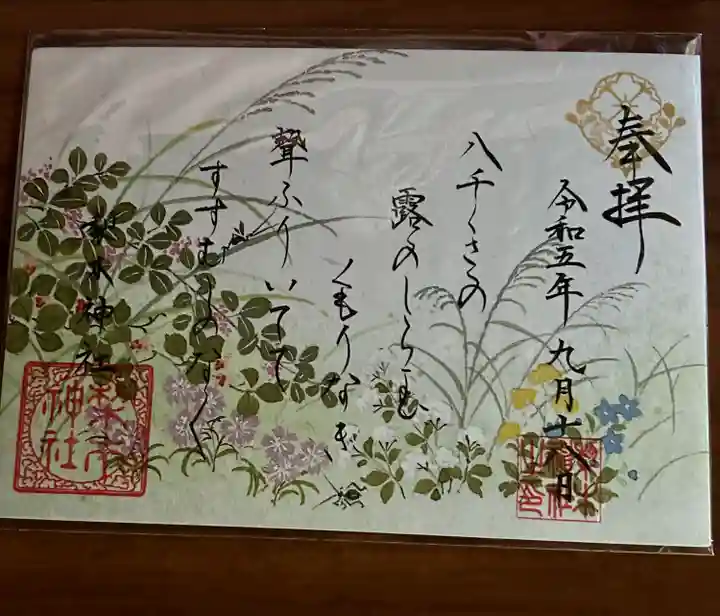 奉拝
令和五年九月十八日
八千くさの
露のしらたも
くもりなき
聲ふりいてて
すすむしのなく
神社
神社